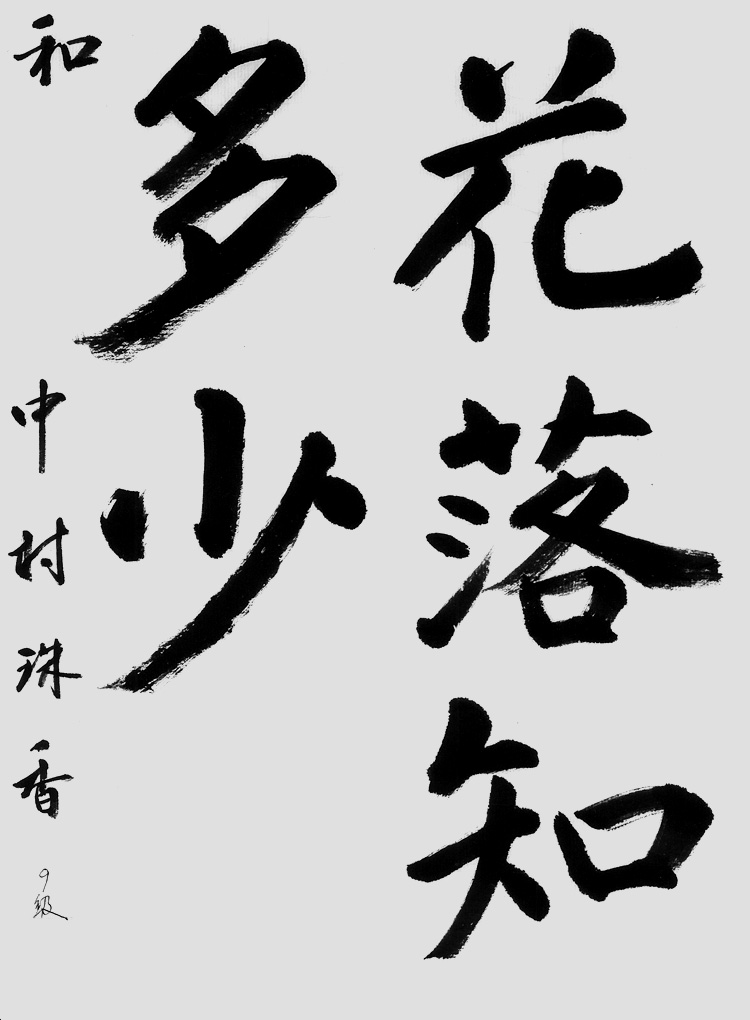 花落知
多少
和 中村珠香 9級